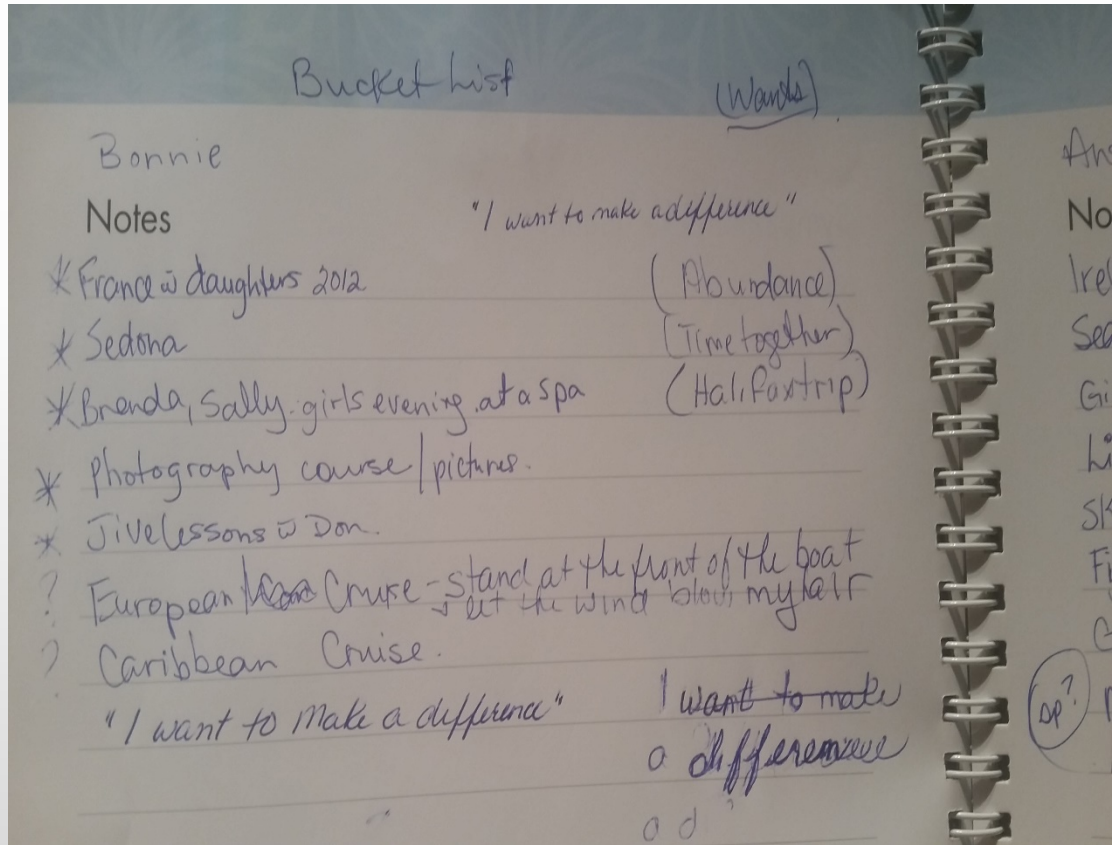 Bucket List
(Wants)
Bonnie
An
Notes
"I want to make a difference"
No
* France w̄ daughters 2012
(Abundance)
Irel
* Sedona
(Time together)
Sed
* Brenda, Sally. girls evening at a spa
(Halifax trip)
Gi
* Photography course/pictures.
Li
* Jive lessons w̄ Don.
Sk
? European Cruise - stand at the front of the boat
Fi
let the wind blow my hair
? Caribbean Cruise.
G
"I want to make a difference"
I want to make
sp?
a difference
a d